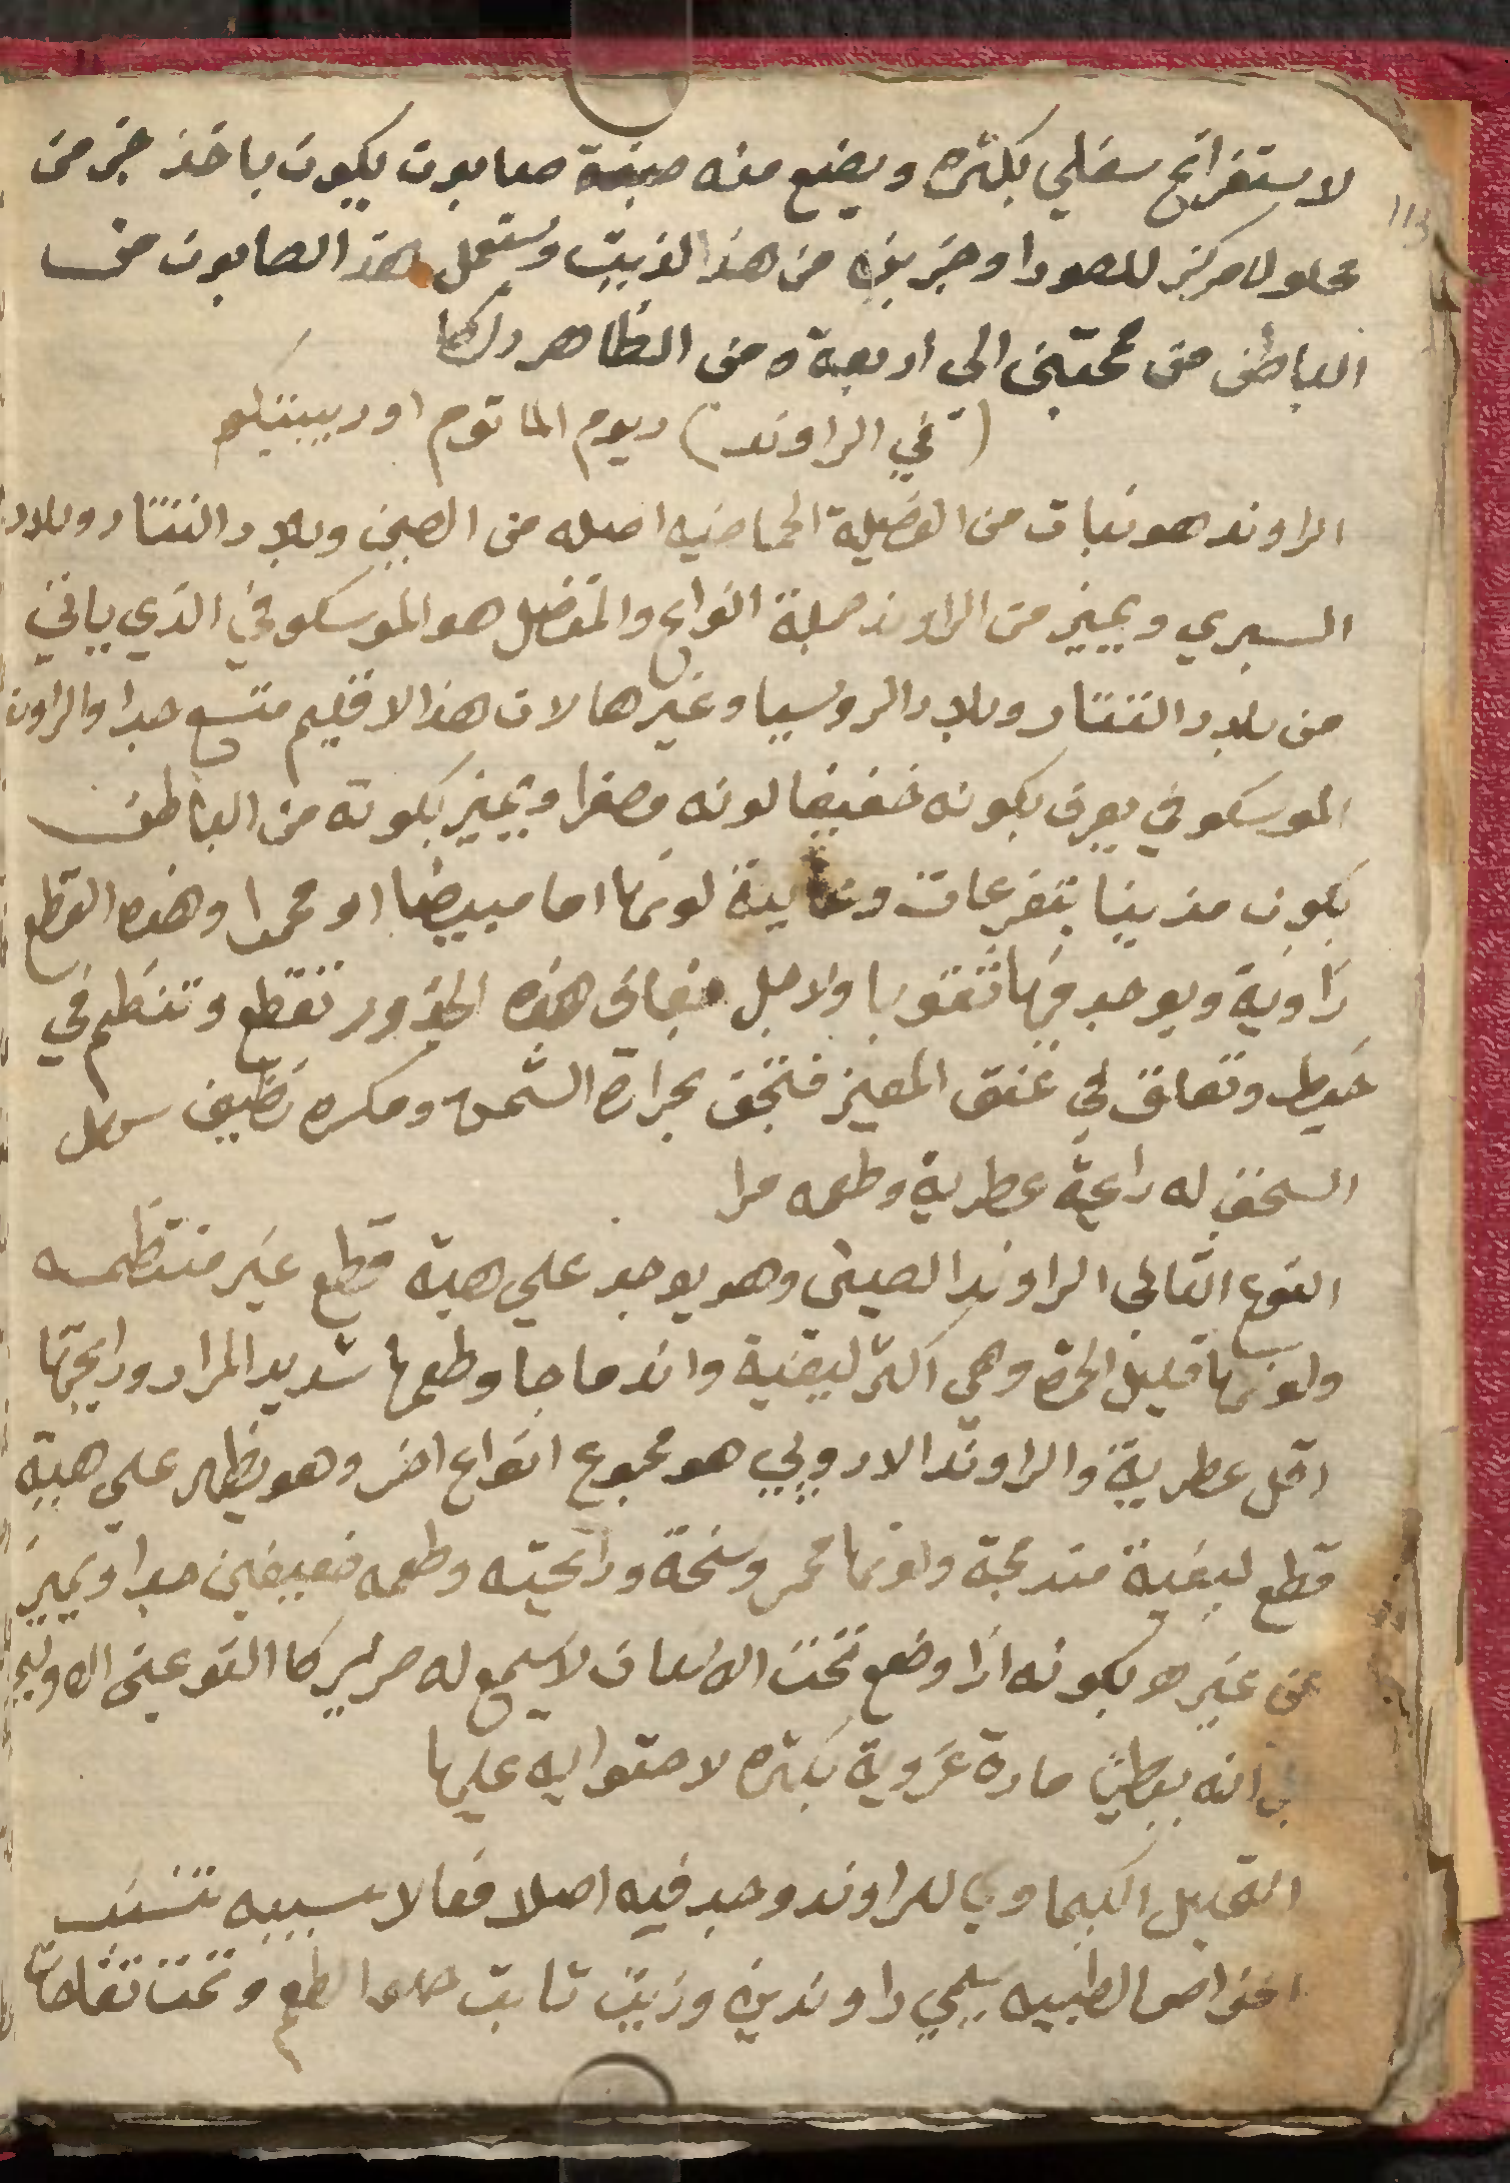 لاستفراغ سفلي بكثره ويصنع منه صبغة صابون يكون باخذ جز من
محلول مركز للصودا وجزيين من هذا الزيت ويستعمل هذا الصابون من
الباطن من قمحتين الي اربعة ومن الظاهر دلكا
(في الراوند) ريوم الماتوم او
الراوند هو نبات من الفصيلة الحماضيه اصله من الصين وبلاد التتار وبلاد
السبري ويميز من الراوند جملة انواع والمتفضل هو الموسكوفي الذي ياتي
من بلاد التتار وبلاد الروسيا وغيرها لان هذا الاقليم متسع جدا والراوند
الموسكوفي يعرف بكونه خفيفا لونه مصفرا ويميز بكونه من الباطن
يكون مزينا بتفرعات لونها اما مبيضا او محمرا وهذه القطع
زاوية ويوجد فيها ثقوبا ولاجل جفاف هذه الجذور تقطع وتنظم في
خيط وتعلق في عنق المعيز فتجف بحرارة الشمس ومكسره نظيف سهل
السحق له رائحة عطرية وطعمه مرا
النوع الثاني الراوند الصيني وهو يوجد علي هيئة قطع غير منتظمه
ولونها قليل الحمرة وهي اكثر ليفية واندماجا وطعمها شديد المرار ورايحتها
اقل عطرية والراوند الاروبي هو مجموع انواع اخر وهو يظهر علي هيئة
قطع ليفية مندمجة ولونها محمر وسخة ورائحته وطعمه ضعيفين جدا ويميز
عن غيره بكونه اذا وضع تحت الاسنان لا يسمع له صرير كالنوعين الاولين
انه يعطي مادة غروية بكثره لاحتوايه عليها
التحليل الكيماوي للراوند وجد فيه اصلا فعالا بسببه تنسب
الخواص الطبيه يسمي راوندين وزيت ثابت حلو الطعم وتحت تفاحات